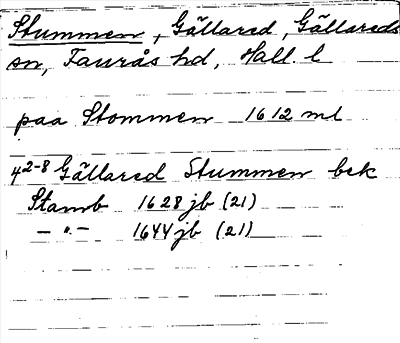 Stummen, Gällared, Gällareds
sn, Faurås hd, Hall. l
paa Stommen 1612 ml
4²⁻⁸ Gällared Stummen bek
Stamb 1628 jb (21)
— " — 1644 jb (21)